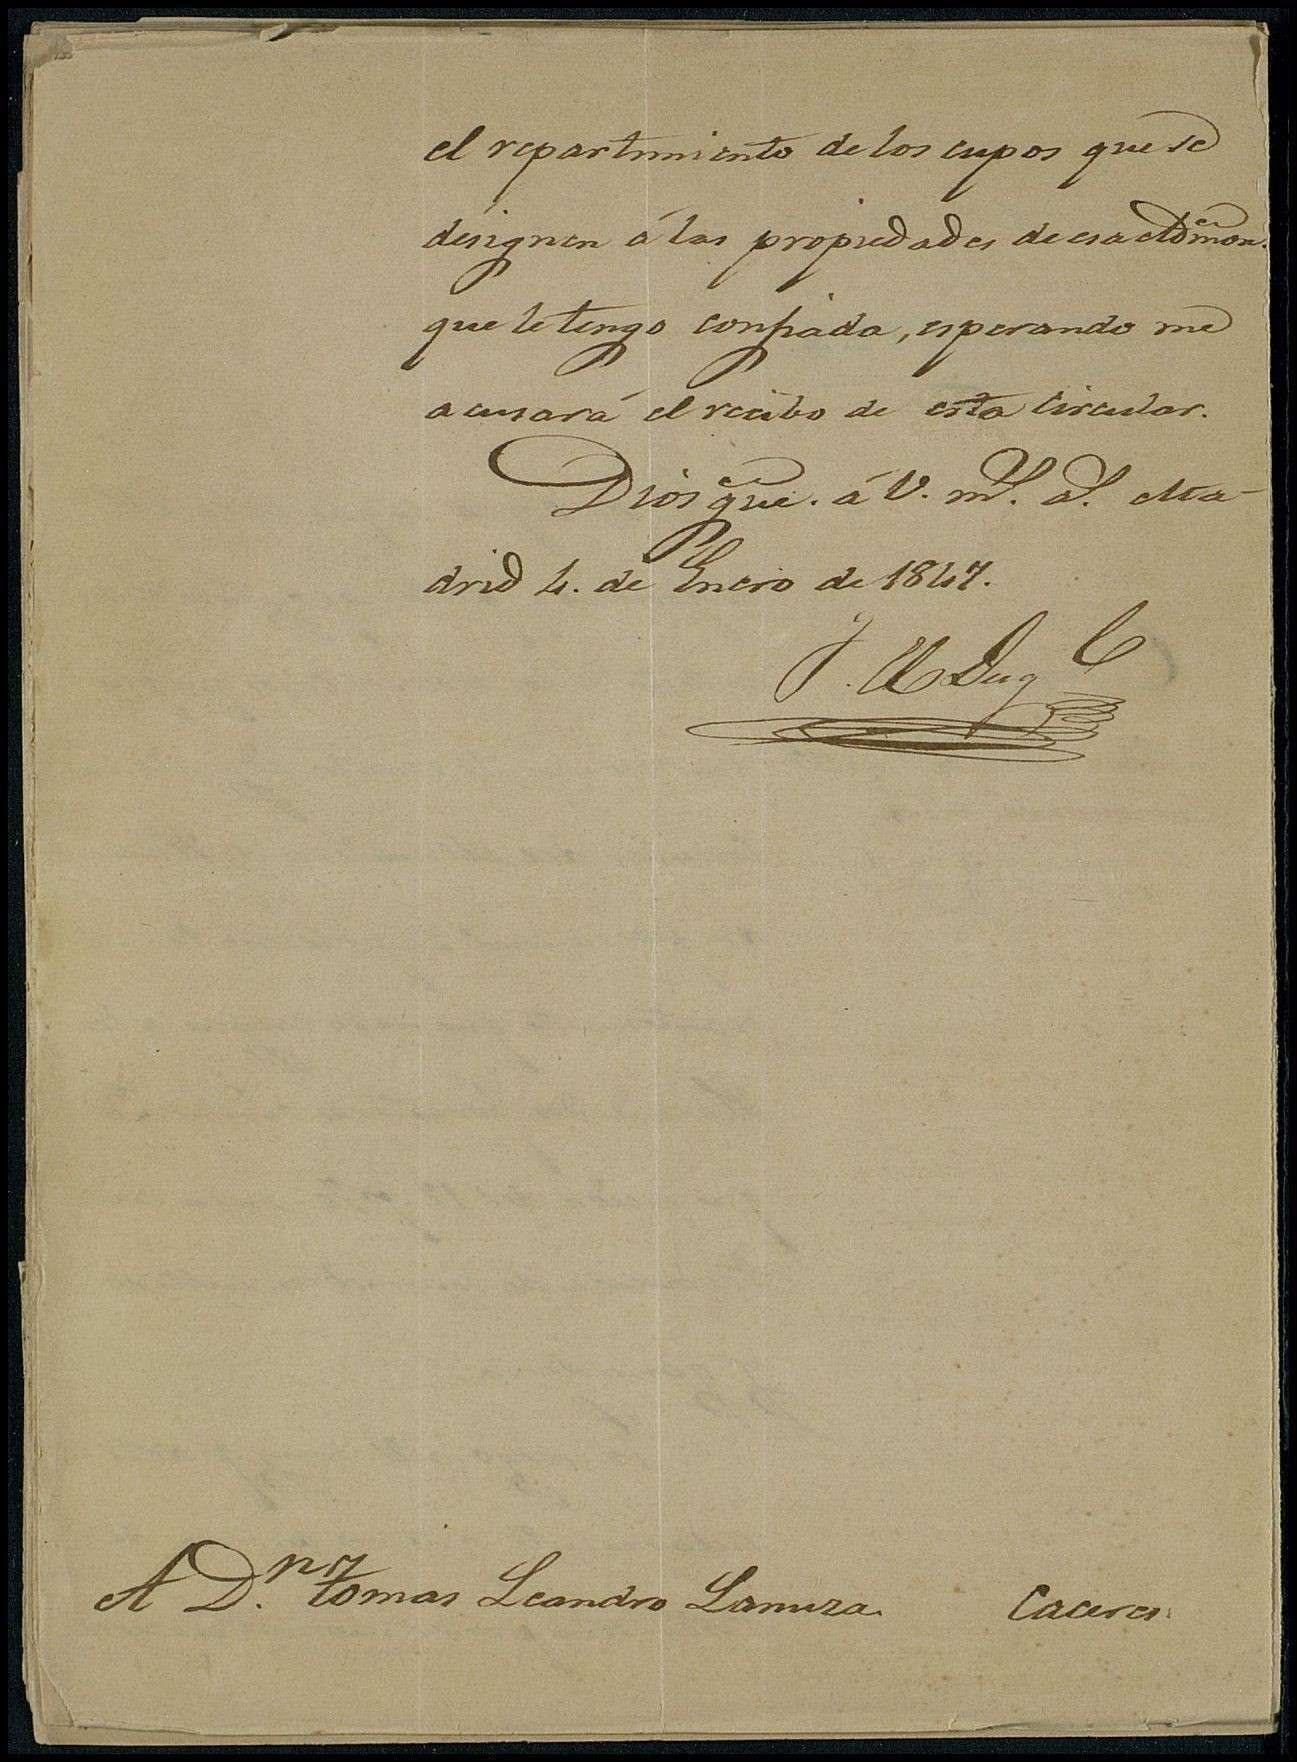 el repartimiento de los cupos que se
designen á las propiedades de esa Admon.
que le tengo confiada, esperando me
acusará el recibo de esta circular.
Dios gue. á V. ms. as. Ma-
drid 4. de Enero de 1847.
A Dn. Tomas Leandro Lanuza. Caceres.